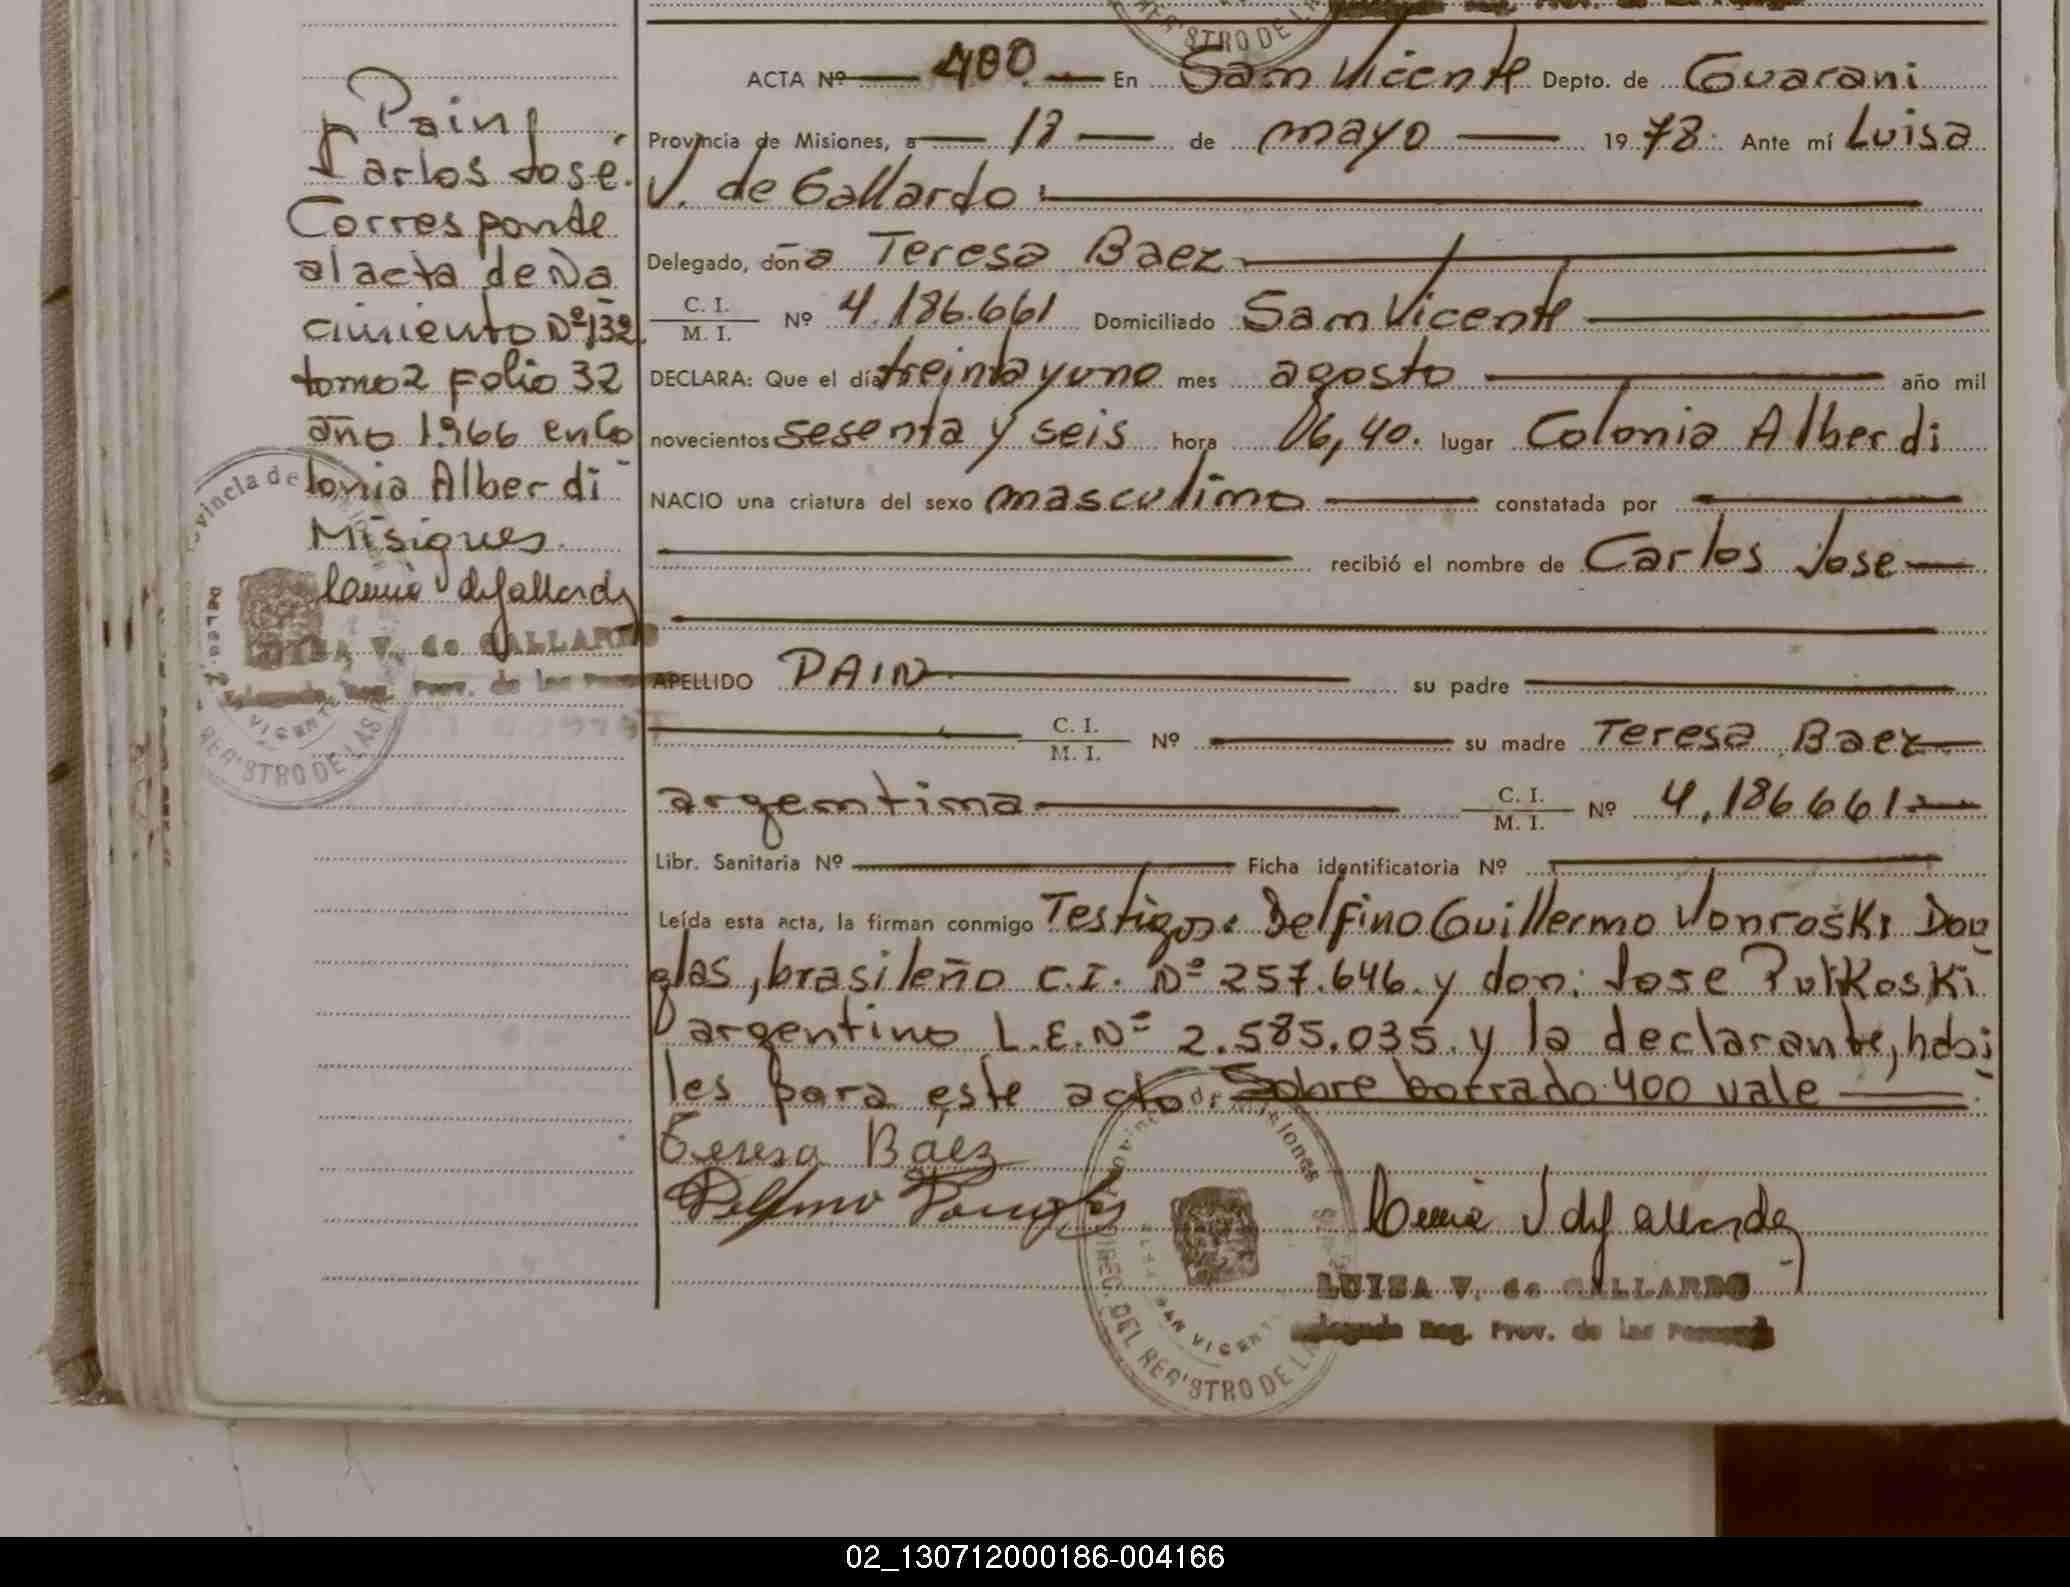 Pain,
Carlos José.
Corresponde
al acta de Na
cimiento Nº 132.
tomo 2 Folio 32
año 1.966 en Co
lonia Alberdi
Misiones.
LUISA V. de GALLARDO
Delegada Reg. Prov. de las Personas
ACTA Nº 400. En San Vicente Depto. de Guarani
Provincia de Misiones, a de mayo 1978. Ante mí Luisa
V. de Gallardo
Delegado, doña Teresa Baez
C. I. / M. I. Nº 4.186.661 Domiciliado San Vicente
DECLARA: Que el día treinta y uno mes agosto año mil
novecientos sesenta y seis hora 06,40. lugar Colonia Alberdi
NACIO una criatura del sexo masculino constatada por
recibió el nombre de Carlos Jose
APELLIDO PAIN su padre
C. I. / M. I. Nº su madre Teresa Baez
argentina C. I. / M. I. Nº 4.186661
Libr. Sanitaria Nº Ficha identificatoria Nº
Leída esta acta, la firman conmigo Testigos: Delfino Guillermo Vonroski Dou
glas, brasileño C.I. Nº 257.646. y don: Jose Pulikoski
argentino L.E. Nº 2.585.035. y la declarante, habi
les para este acto. Sobre borrado 400 vale
Teresa Báez
LUISA V. de GALLARDO
Delegada Reg. Prov. de las Personas
SAN VICENTE
DIREC. DEL REGISTRO DE LAS
02_130712000186-004166